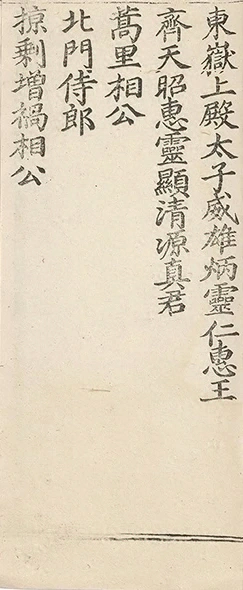 東嶽上殿太子威雄炳靈仁惠王
齊天昭惠靈顯清源真君
蒿里相公
北門侍郎
掠剩增禍相公